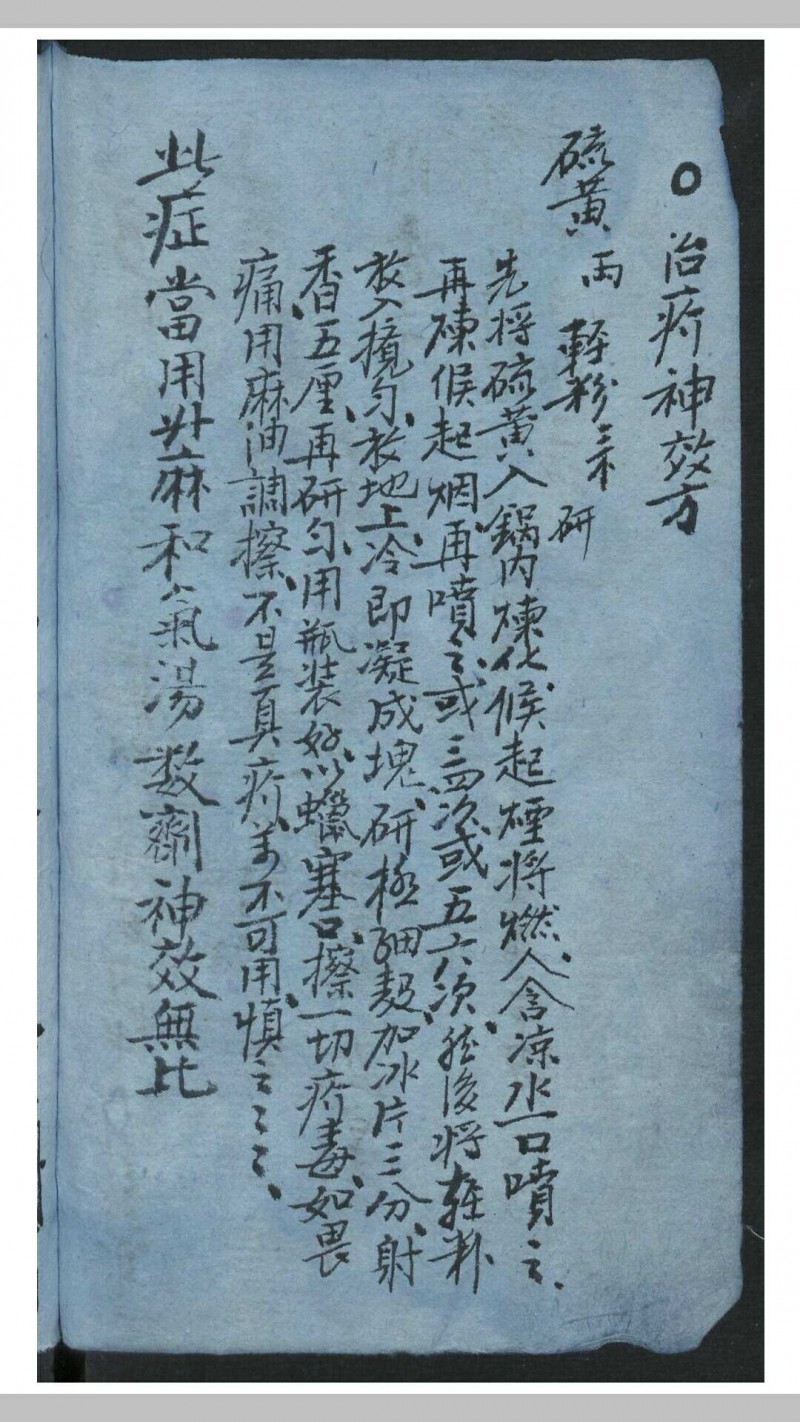 ○治疥神效方
硫黄 両 輕粉 三不 研
先将硫黄入鍋内煉化候起煙将燃人含凉水一口噴之
再煉候起烟再噴之或三四次或五六次然後将輕粉
放入攪匀放地上冷即凝成塊研極細麪加冰片三分射
香五厘再研匀用瓶装好以蠟塞口擦一切疥毒如畏
痛用麻油調擦不是真疥萬不可用慎之之之
此症當用升麻和氣湯数齊神效無比